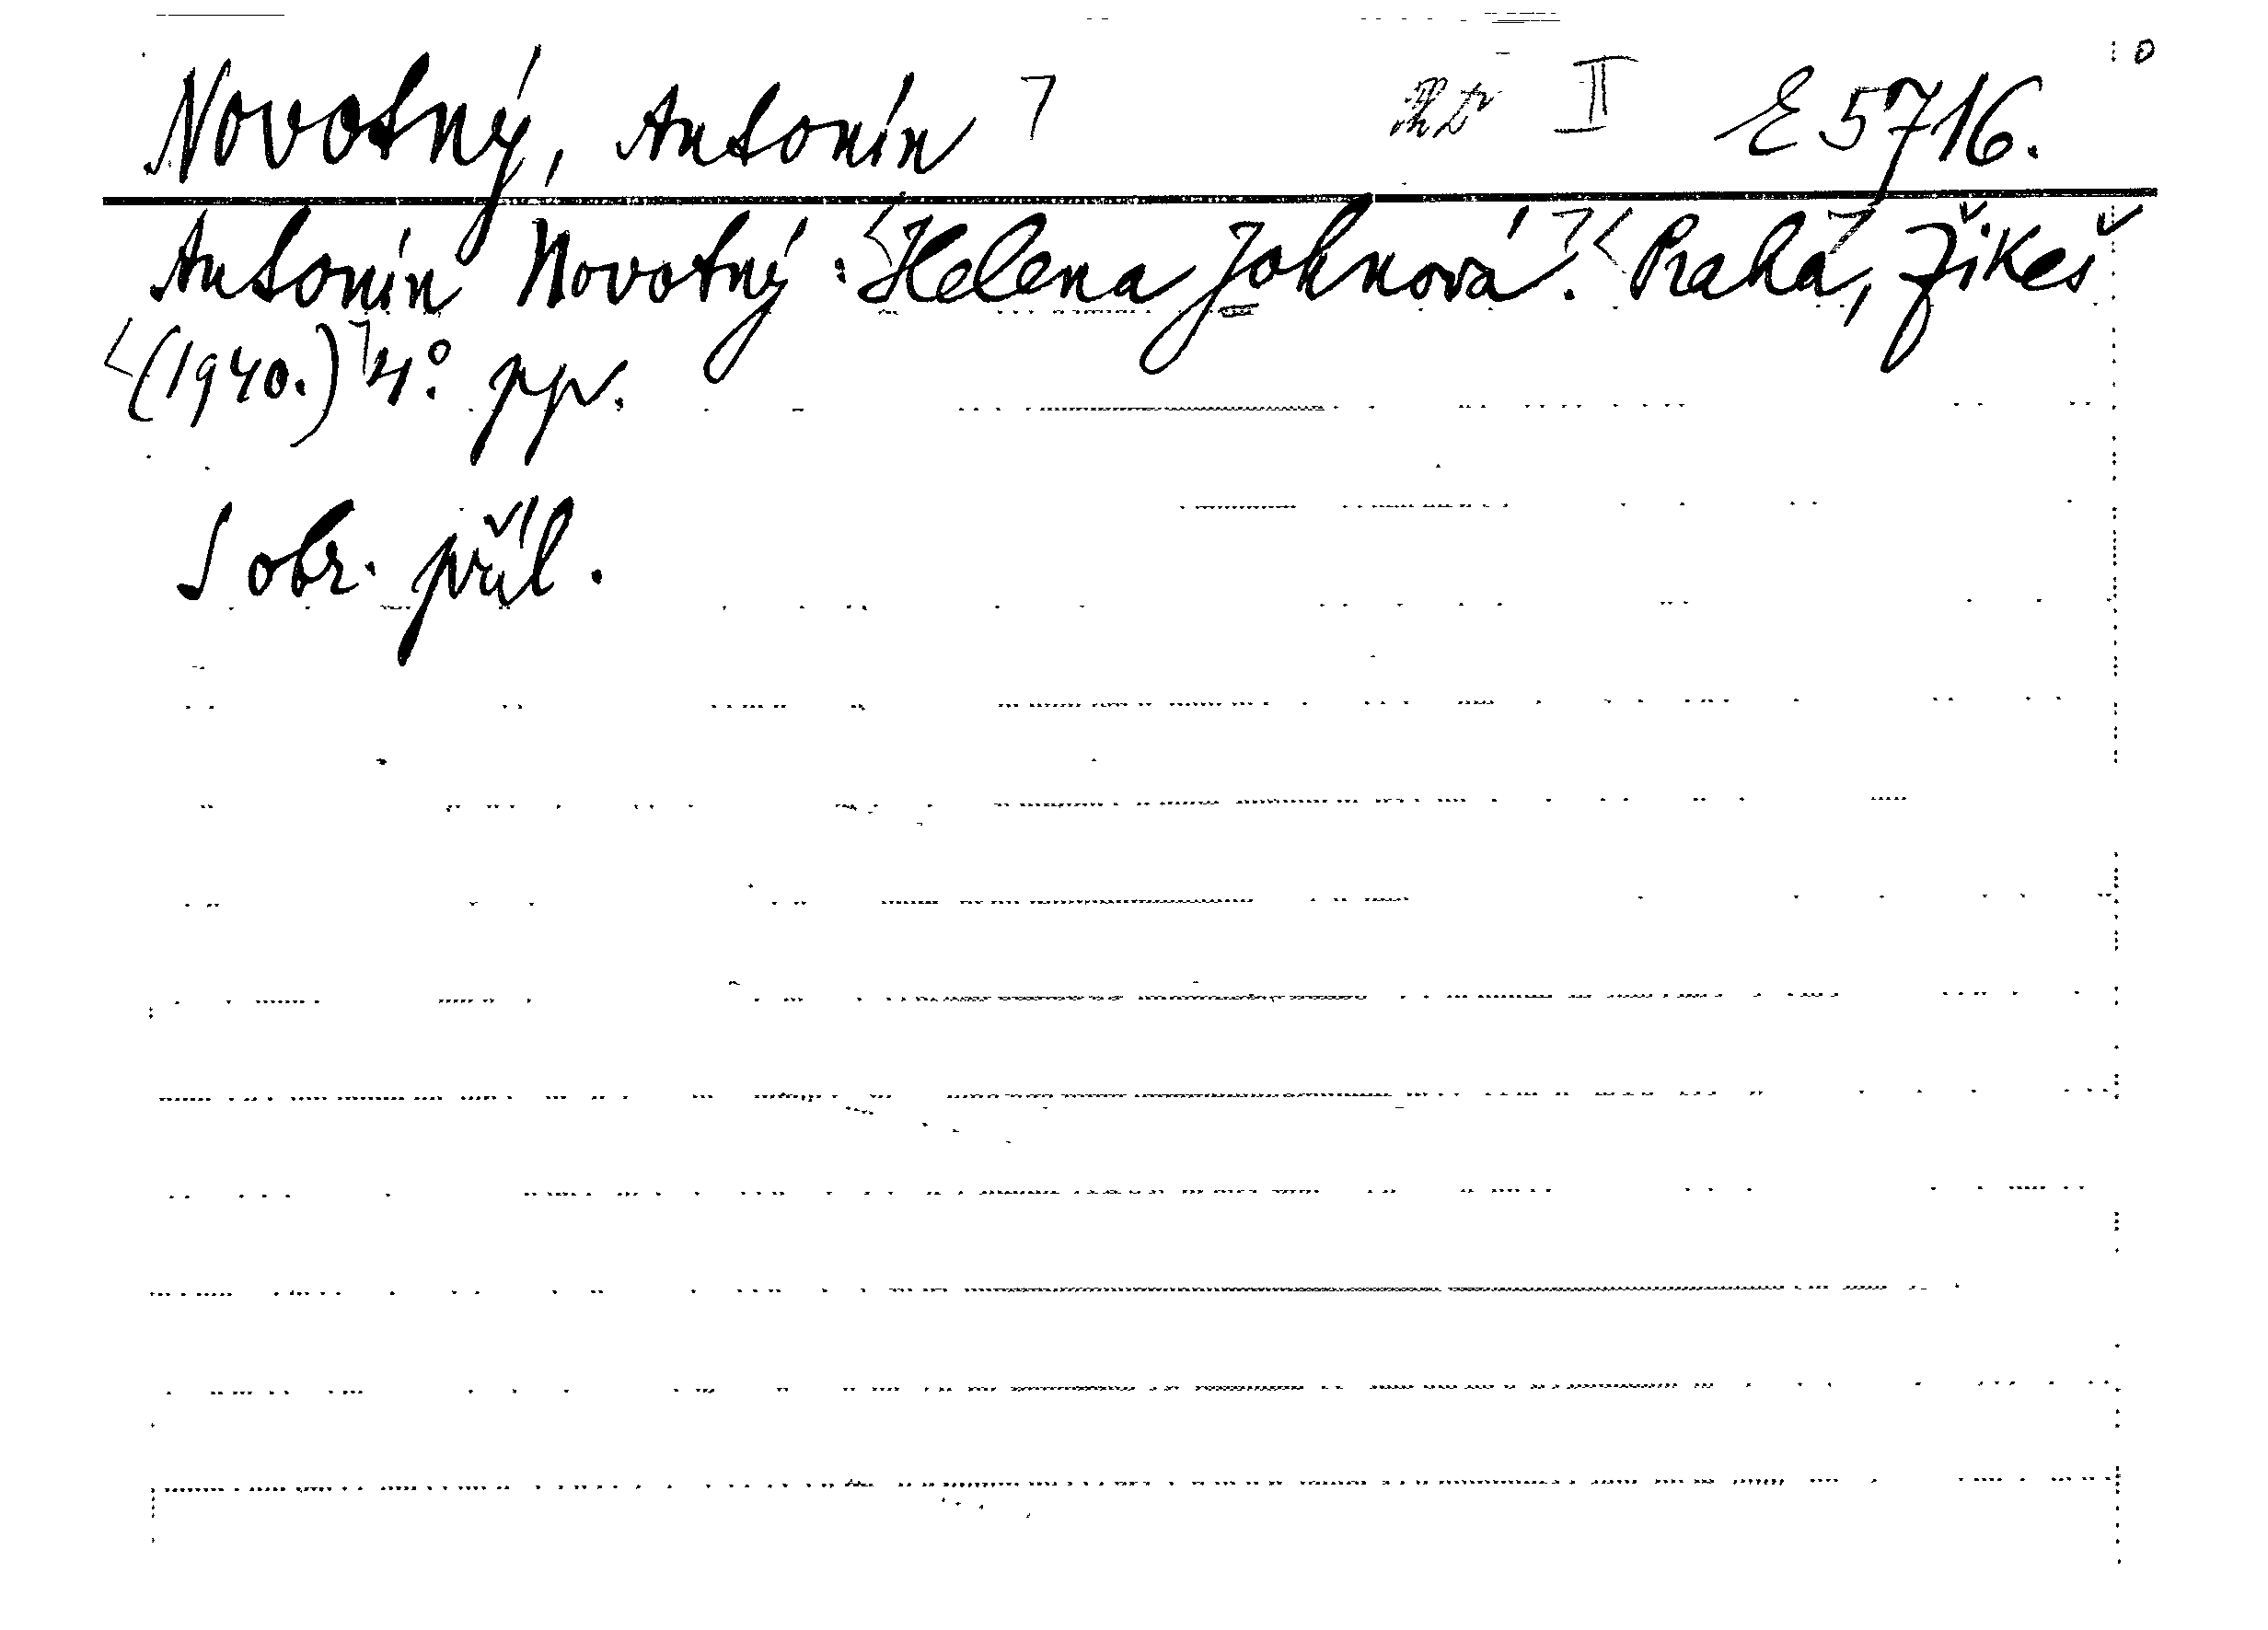 Novotný, Antonín II E 5716.
Antonín Novotný: Helena Johnová. Praha, Žikeš
(1940.) 4°. pp.
S obr. příl.